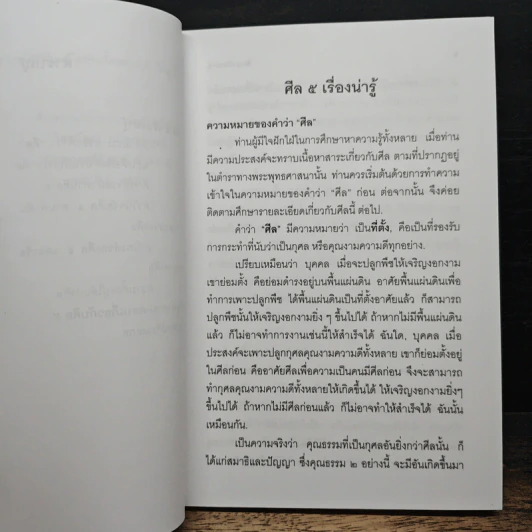 ศีล ๕ เรื่องน่ารู้
ความหมายของคำว่า "ศีล"
ท่านผู้มีใจฝักใฝ่ในการศึกษาหาความรู้ทั้งหลาย เมื่อท่าน
มีความประสงค์จะทราบเนื้อหาสาระเกี่ยวกับศีล ตามที่ปรากฏอยู่
ในตำราทางพระพุทธศาสนานั้น ท่านควรเริ่มต้นด้วยการทำความ
เข้าใจในความหมายของคำว่า "ศีล" ก่อน ต่อจากนั้น จึงค่อย
ติดตามศึกษารายละเอียดเกี่ยวกับศีลนี้ ต่อไป.
คำว่า "ศีล" มีความหมายว่า เป็นที่ตั้ง, คือเป็นที่รองรับ
การกระทำที่นับว่าเป็นกุศล หรือคุณงามความดีทุกอย่าง.
เปรียบเหมือนว่า บุคคล เมื่อจะปลูกพืชให้เจริญงอกงาม
เขาย่อมตั้ง คือย่อมดำรงอยู่บนพื้นแผ่นดิน อาศัยพื้นแผ่นดินเพื่อ
ทำการเพาะปลูกพืช ได้พื้นแผ่นดินเป็นที่ตั้งอาศัยแล้ว ก็สามารถ
ปลูกพืชนั้นให้เจริญงอกงามยิ่ง ๆ ขึ้นไปได้ ถ้าหากไม่มีพื้นแผ่นดิน
แล้ว ก็ไม่อาจทำการงานเช่นนี้ให้สำเร็จได้ ฉันใด, บุคคล เมื่อ
ประสงค์จะเพาะปลูกกุศลคุณงามความดีทั้งหลาย เขาก็ย่อมตั้งอยู่
ในศีลก่อน คืออาศัยศีลเพื่อความเป็นคนมีศีลก่อน จึงจะสามารถ
ทำกุศลคุณงามความดีทั้งหลายให้เกิดขึ้นได้ ให้เจริญงอกงามยิ่งๆ
ขึ้นไปได้ ถ้าหากไม่มีศีลก่อนแล้ว ก็ไม่อาจทำให้สำเร็จได้ ฉันนั้น
เหมือนกัน.
เป็นความจริงว่า คุณธรรมที่เป็นกุศลอันยิ่งกว่าศีลนั้น ก็
ได้แก่สมาธิและปัญญา ซึ่งคุณธรรม ๒ อย่างนี้ จะมีอันเกิดขึ้นมา